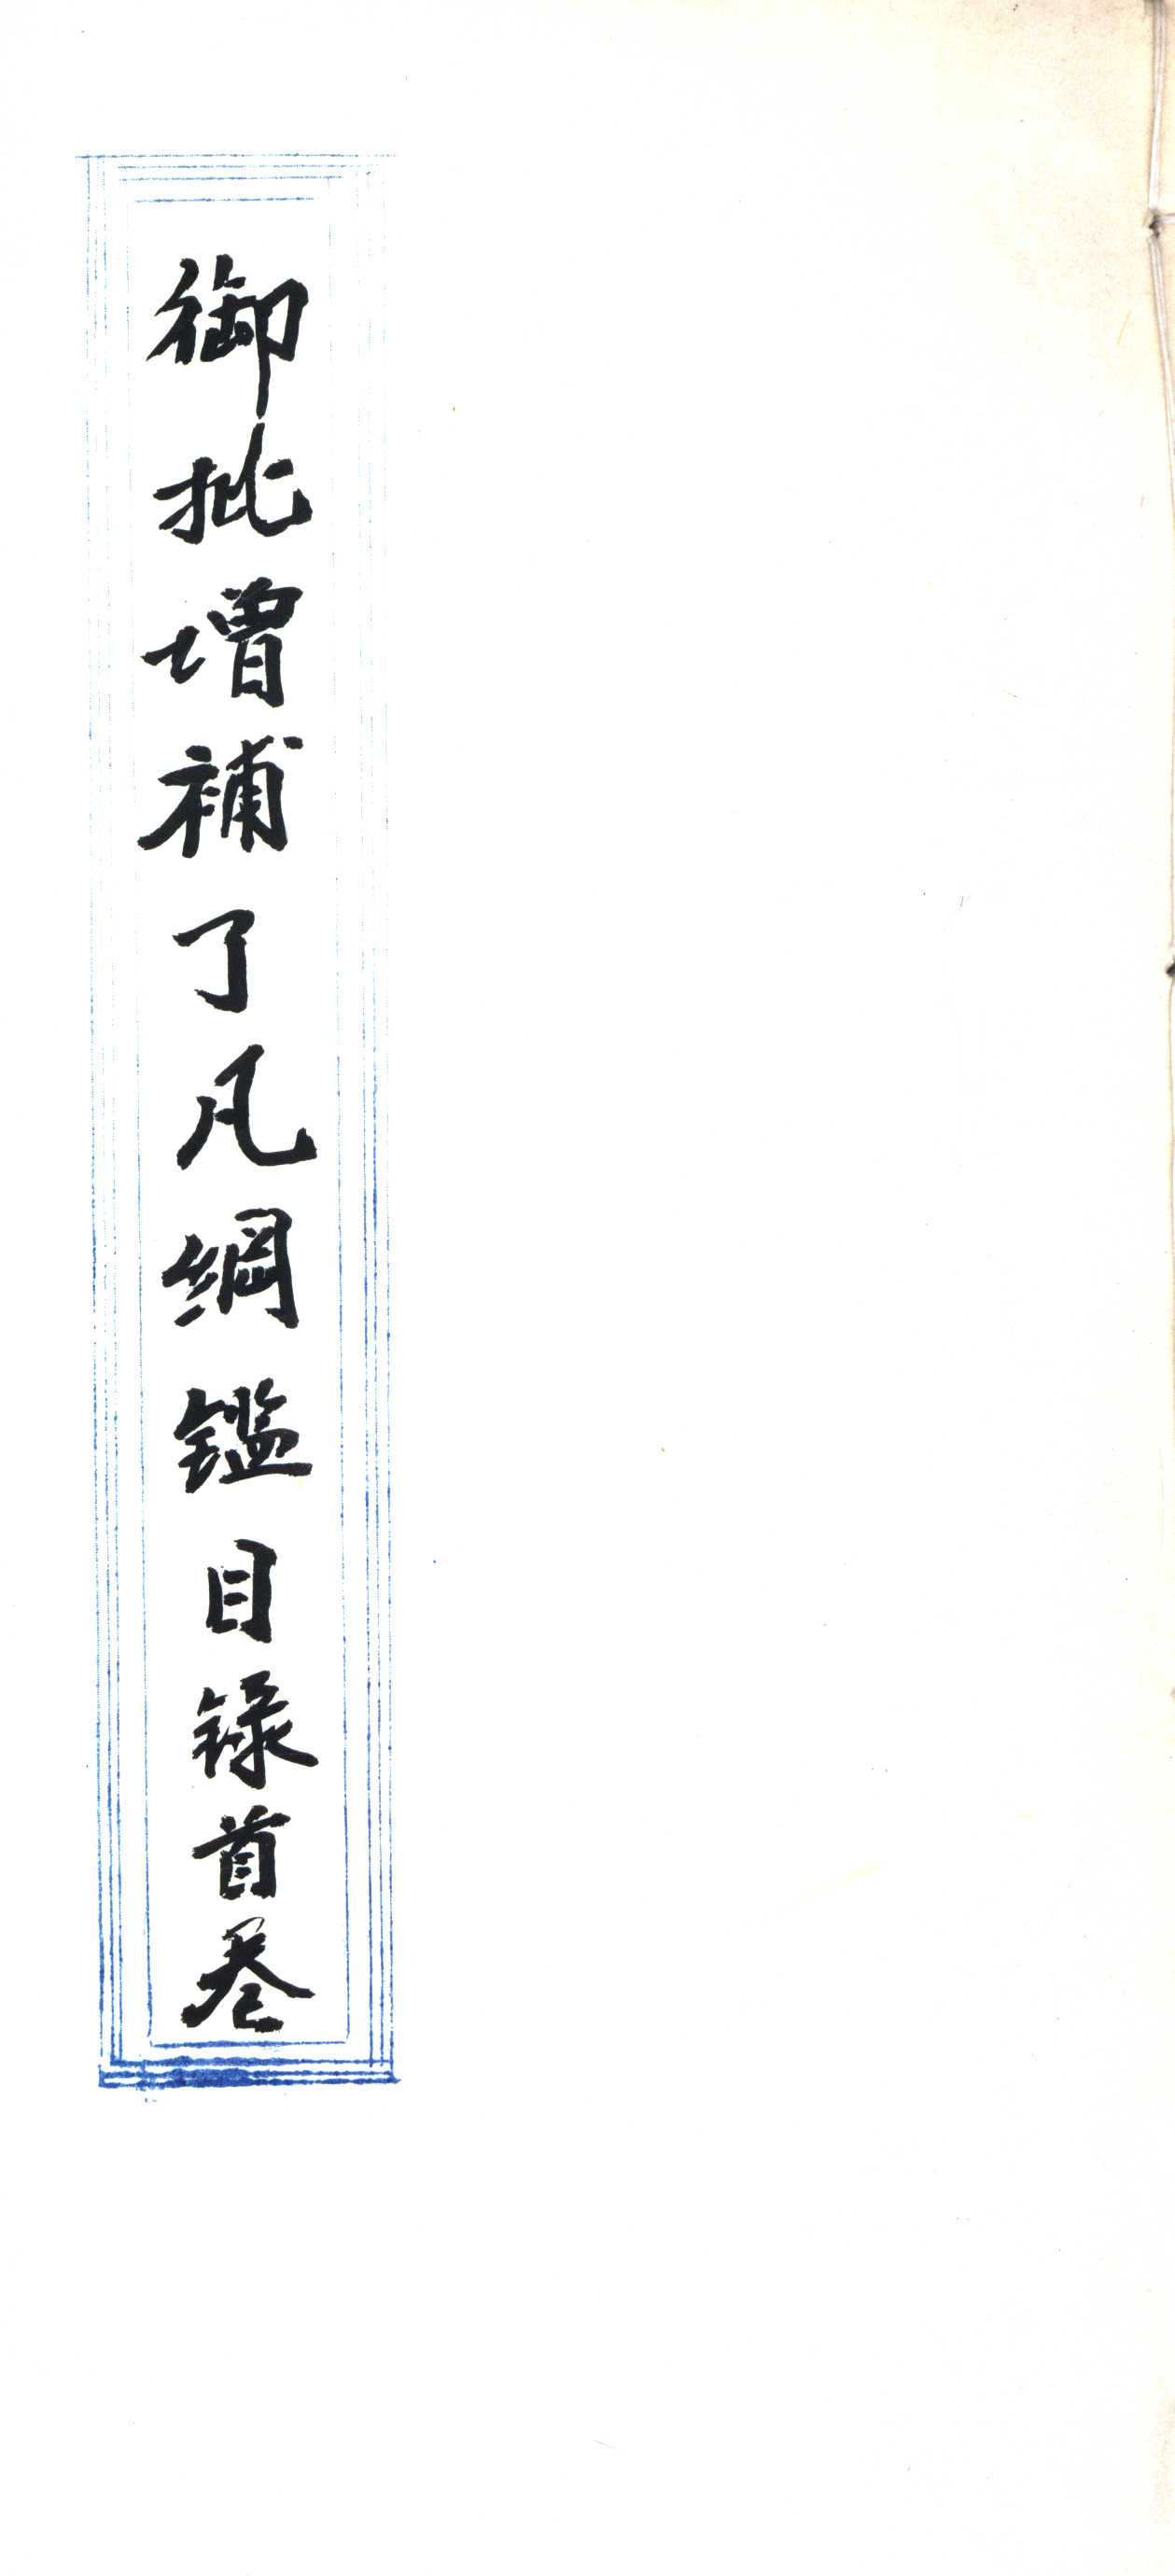 御批增補了凡綱鑑目録首卷